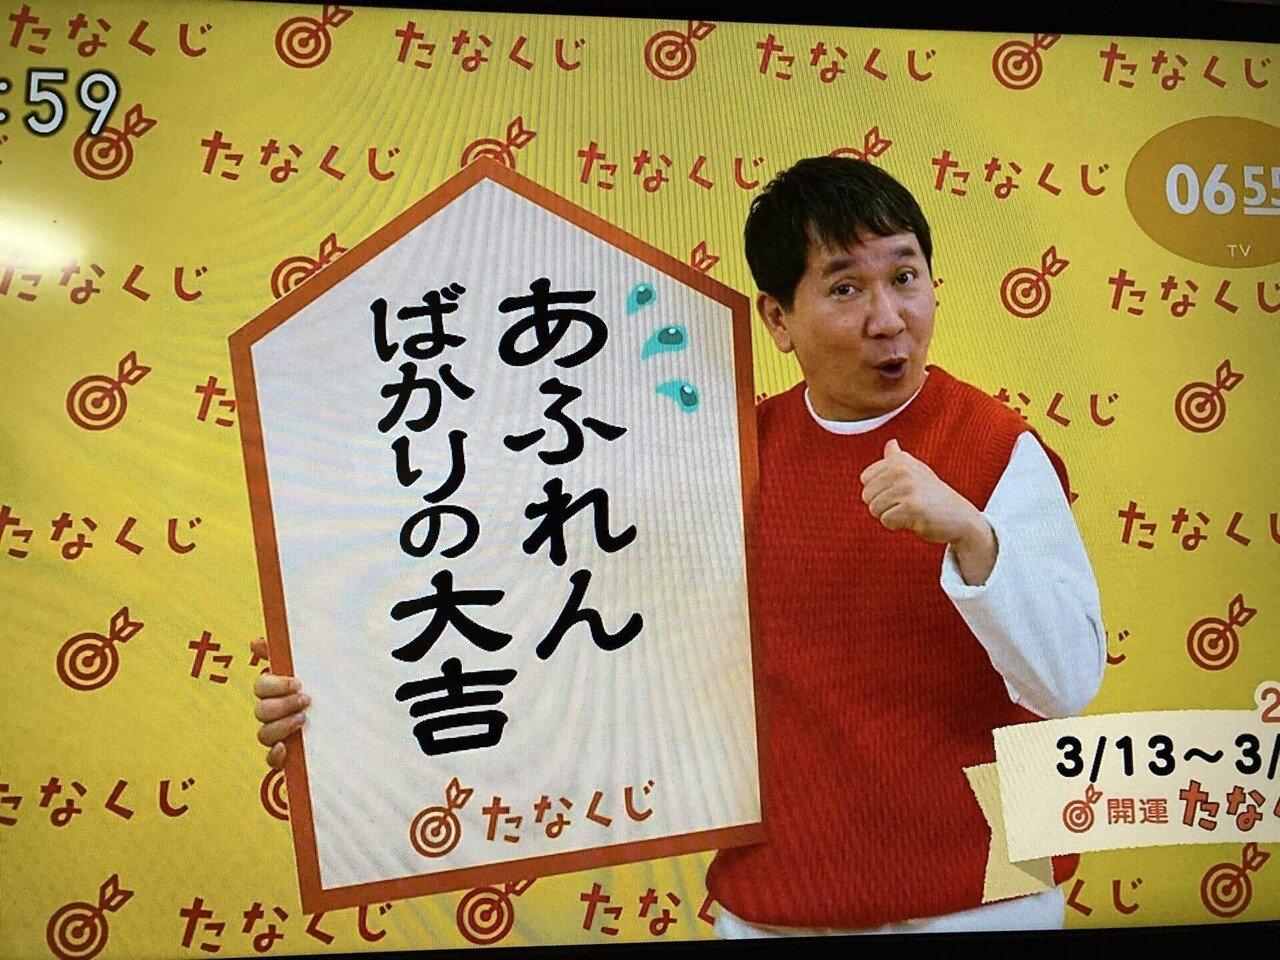 :59
0655
TV
あふれん
ばかりの大吉
たなくじ
3/13～3/
開運 たな
たなくじ たなくじ たなくじ たなくじ
たなくじ たなくじ たなくじ
たなくじ たなくじ
たなくじ たなくじ
たなくじ たなくじ たなくじ